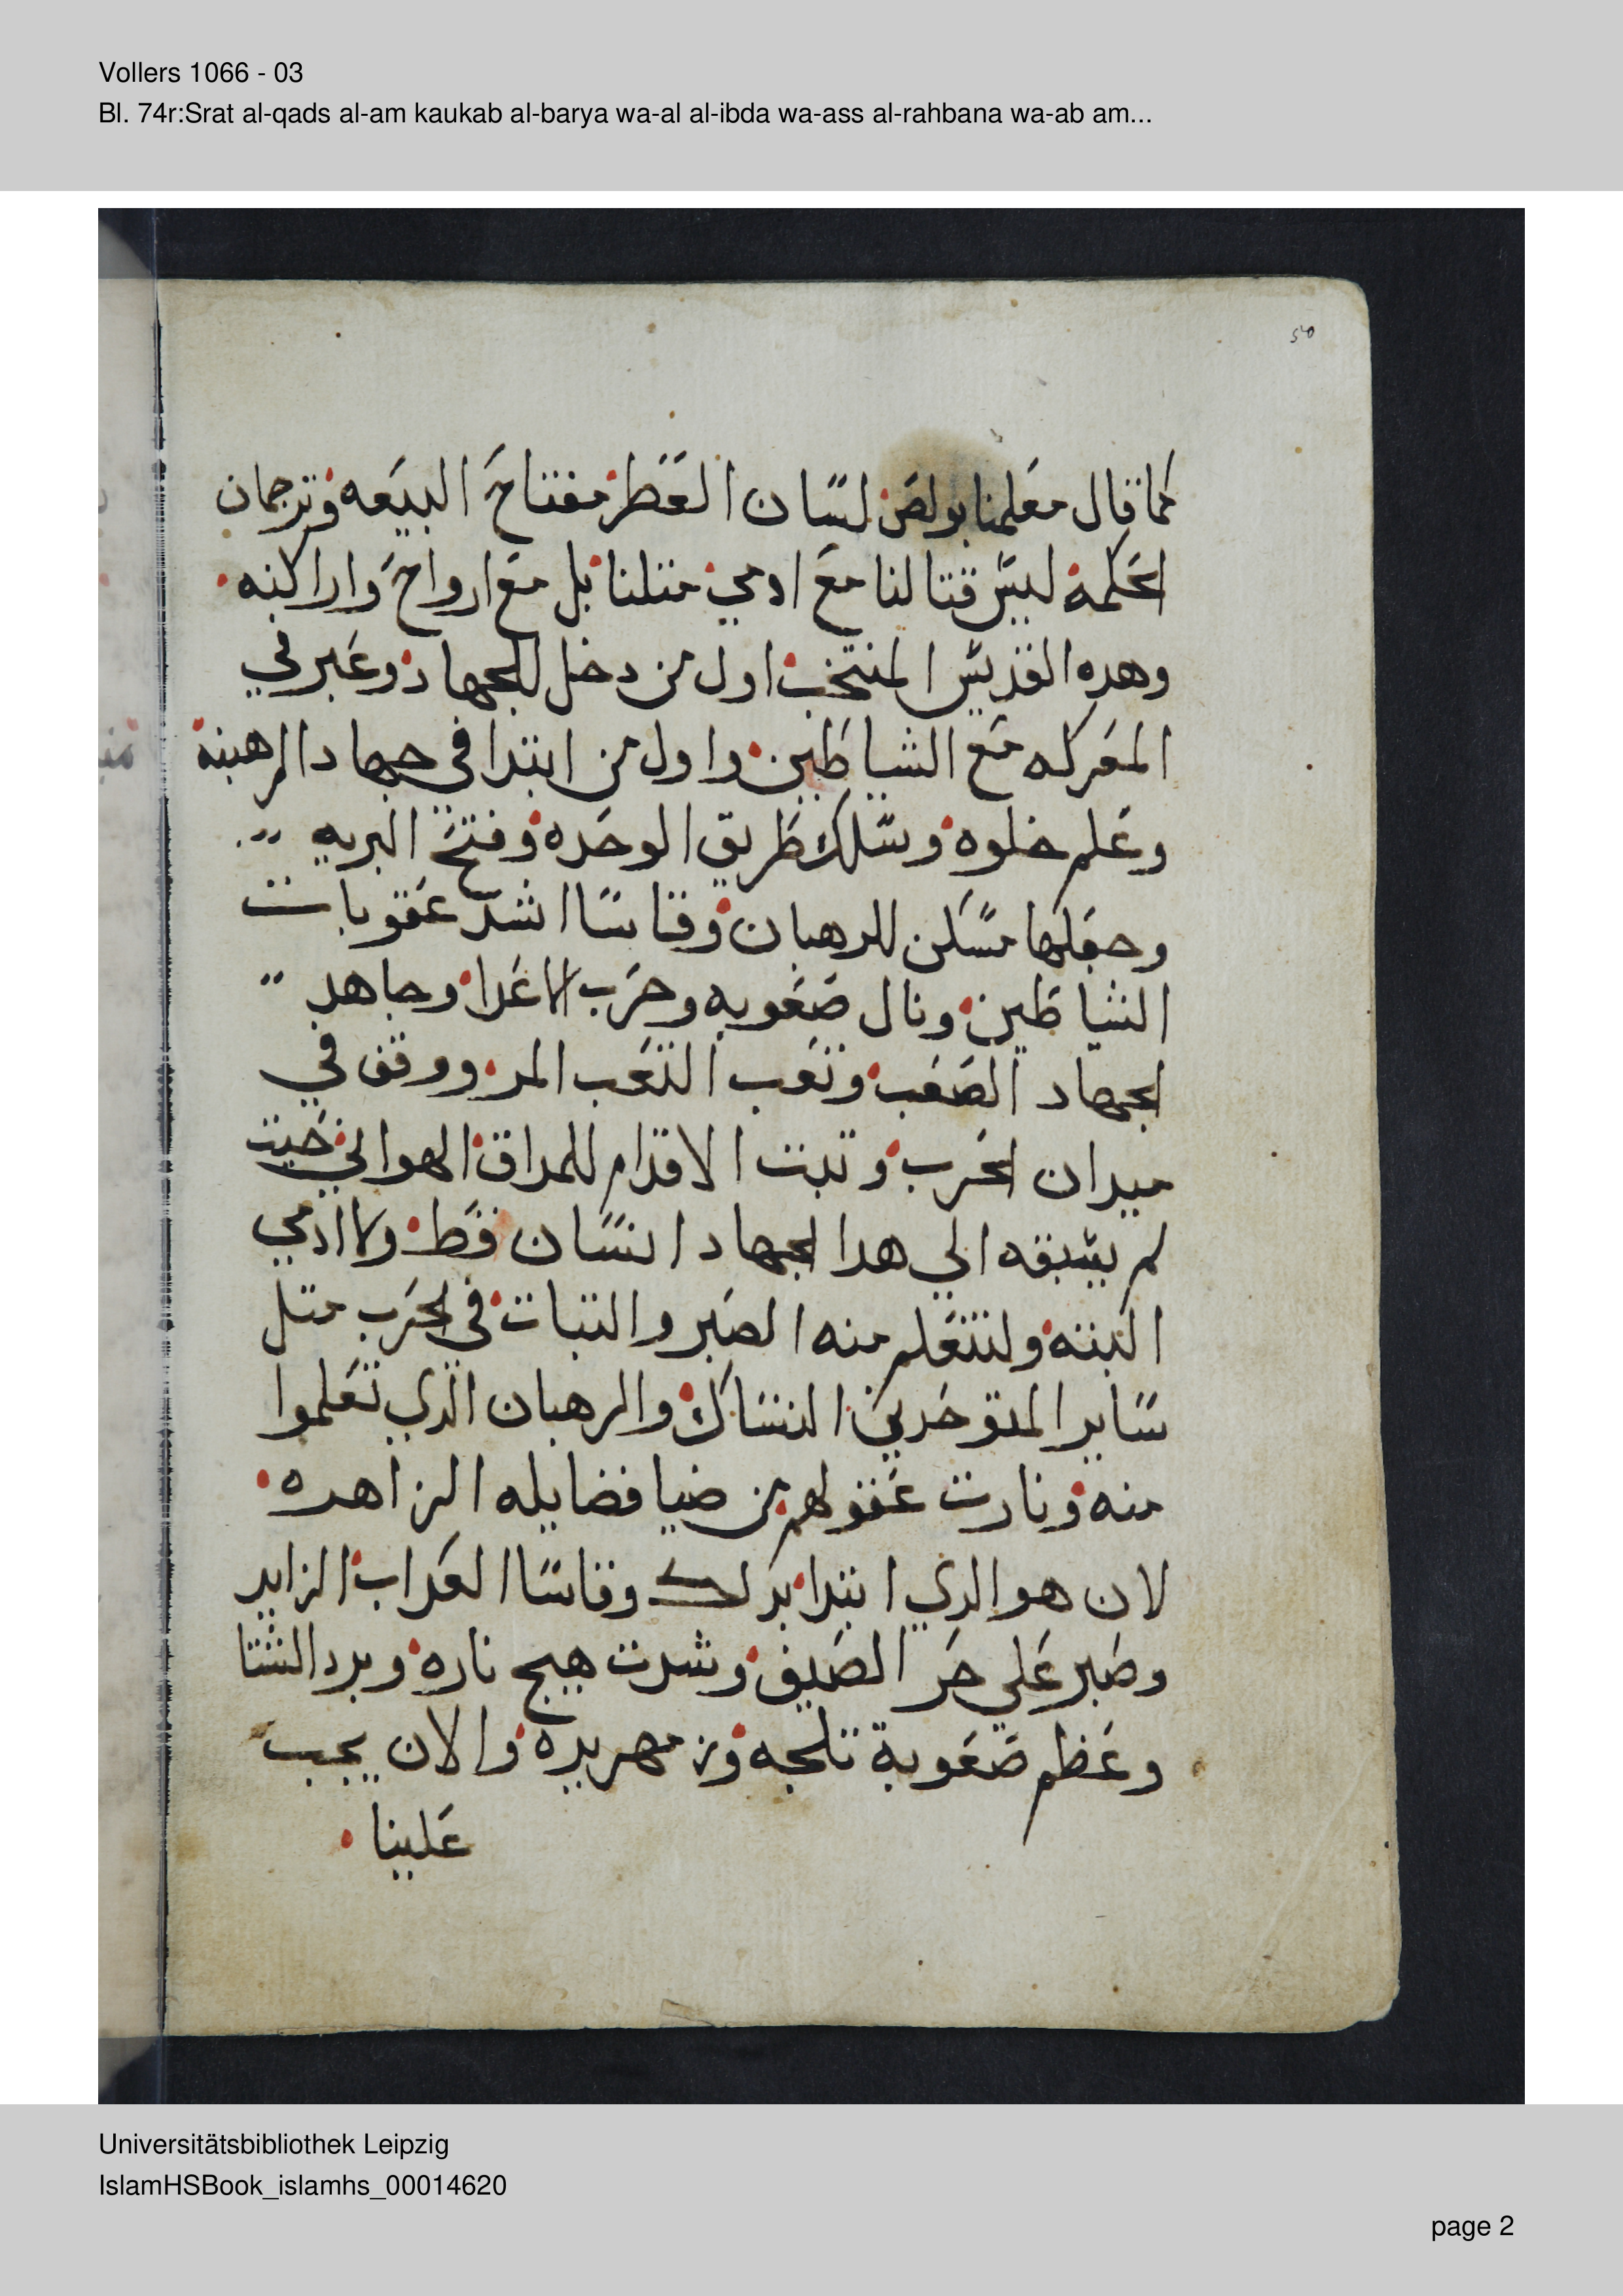 Vollers 1066 - 03
Bl. 74r:Srat al-qads al-am kaukab al-barya wa-al al-ibda wa-ass al-rahbana wa-ab am...
كما قال معلمنا بولص لسان العطر مفتاح البيعه وترجمان
الحكمة ليس قتالنا مع ادمي متلنا بل مع ارواح واراكنه
وهده القديس المنتخب اول من دخل للجهاد وعبر في
المعركه مع الشياطين واول من ابتدا في جهاد الرهبنة
وعلم خلوه وسلك طريق الوحده وفتح البريه
وجعلها مسكن للرهبان وقاسا اشد عقوبات
الشياطين ونال صعوبه وحرب الاعدا وجاهد
الجهاد الصعب وتعب التعب المر ووقف في
ميدان الحرب وتبت الاقدام للمداق الهواني حيت
لم يسبقه الي هدا الجهاد انسان قط ولا ادمي
البته ولنتعلم منه الصبر والتبات في الحرب متل
ساير المتوحدين النساك والرهبان الدي تعلموا
منه ونارت عقولهم من ضيا فضايله الزاهده
لان هو الدي ابتدا بدلك وقاسا العداب الزايد
وصبر علي حر الصيف وشدت هيج ناره وبرد الشتا
وعظم صعوبة تلجه وزمهريره والان يجب
علينا
Universitätsbibliothek Leipzig
IslamHSBook_islamhs_00014620
page 2